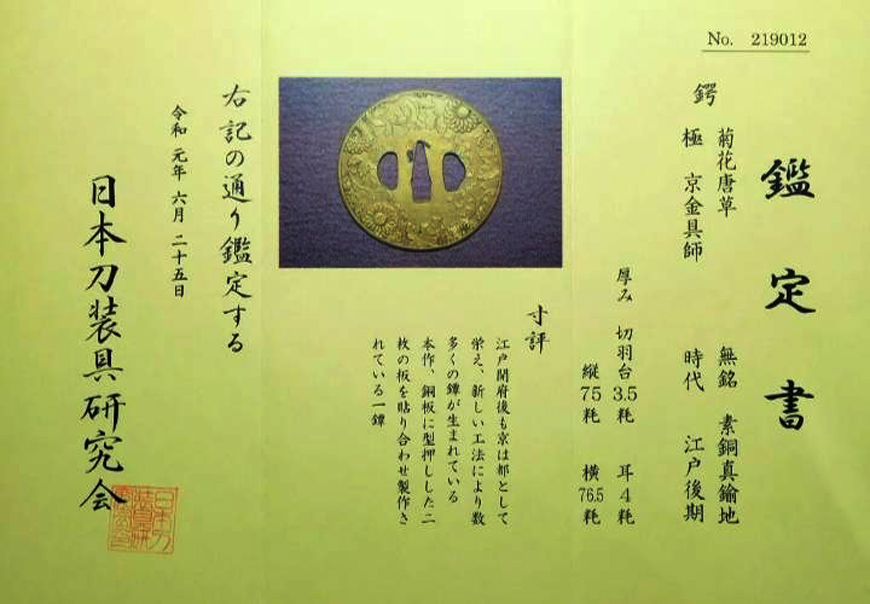 No. 219012
鑑定書
鍔 菊花唐草 無銘 素銅真鍮地
極 京金具師 時代 江戸後期
厚み 切羽台 3.5 粍 耳 4 粍
縦 75 粍 横 76.5 粍
寸評
江戸開府後も京は都として
栄え、新しい工法により数
多くの鐔が生まれている
本作、銅板に型押しした二
枚の板を貼り合わせ製作さ
れている一鐔
右記の通り鑑定する
令和 元年 六月 二十五日
日本刀装具研究会